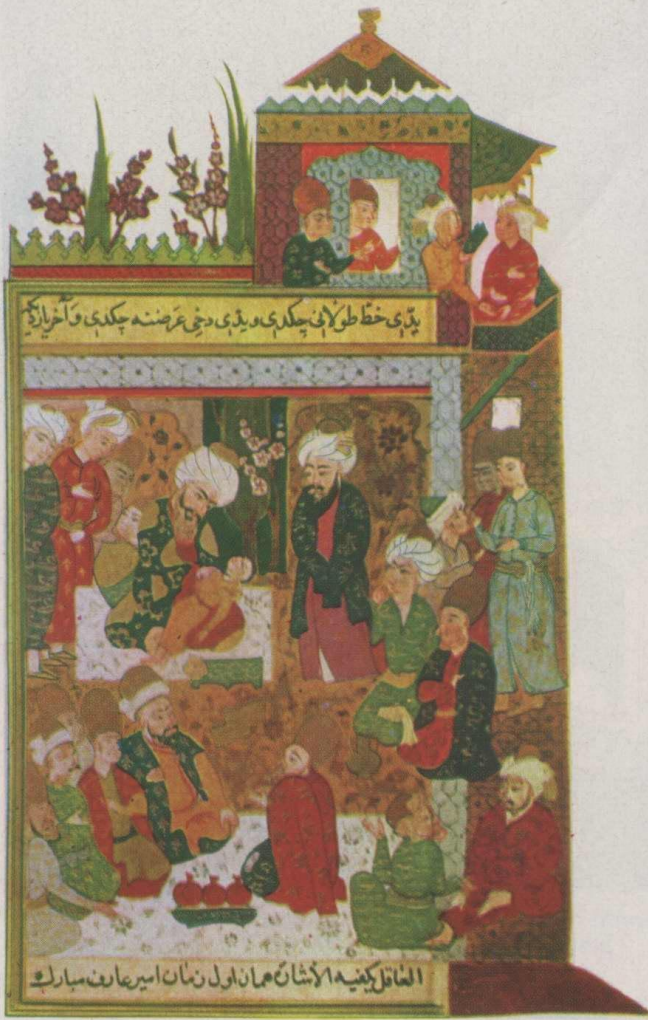 یدی خط طولانی چکدی و یدی دخی عرضنه چکدی و آخر
العاقل یکفیه الاشاره همان اول زمان امیر عارف مبارك